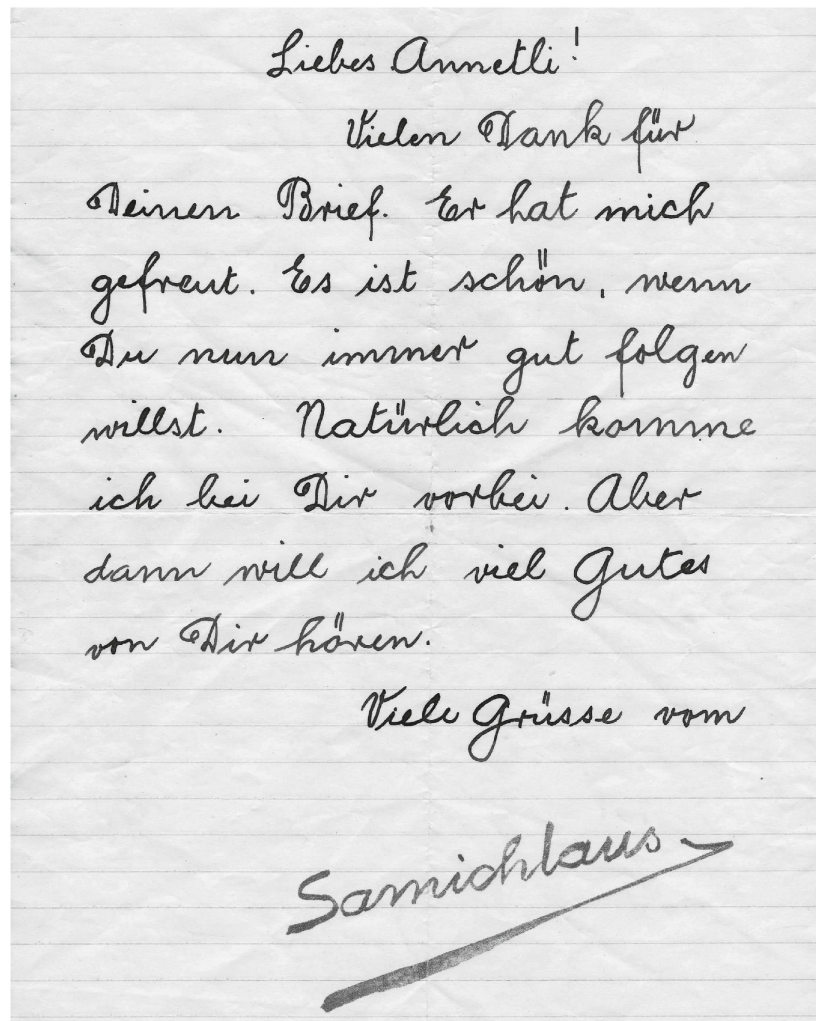 Liebes Annetli!
Vielen Dank für
Deinen Brief. Er hat mich
gefreut. Es ist schön, wenn
Du nun immer gut folgen
willst. Natürlich komme
ich bei Dir vorbei. Aber
dann will ich viel Gutes
von Dir hören.
Viele Grüsse vom
Samichlaus